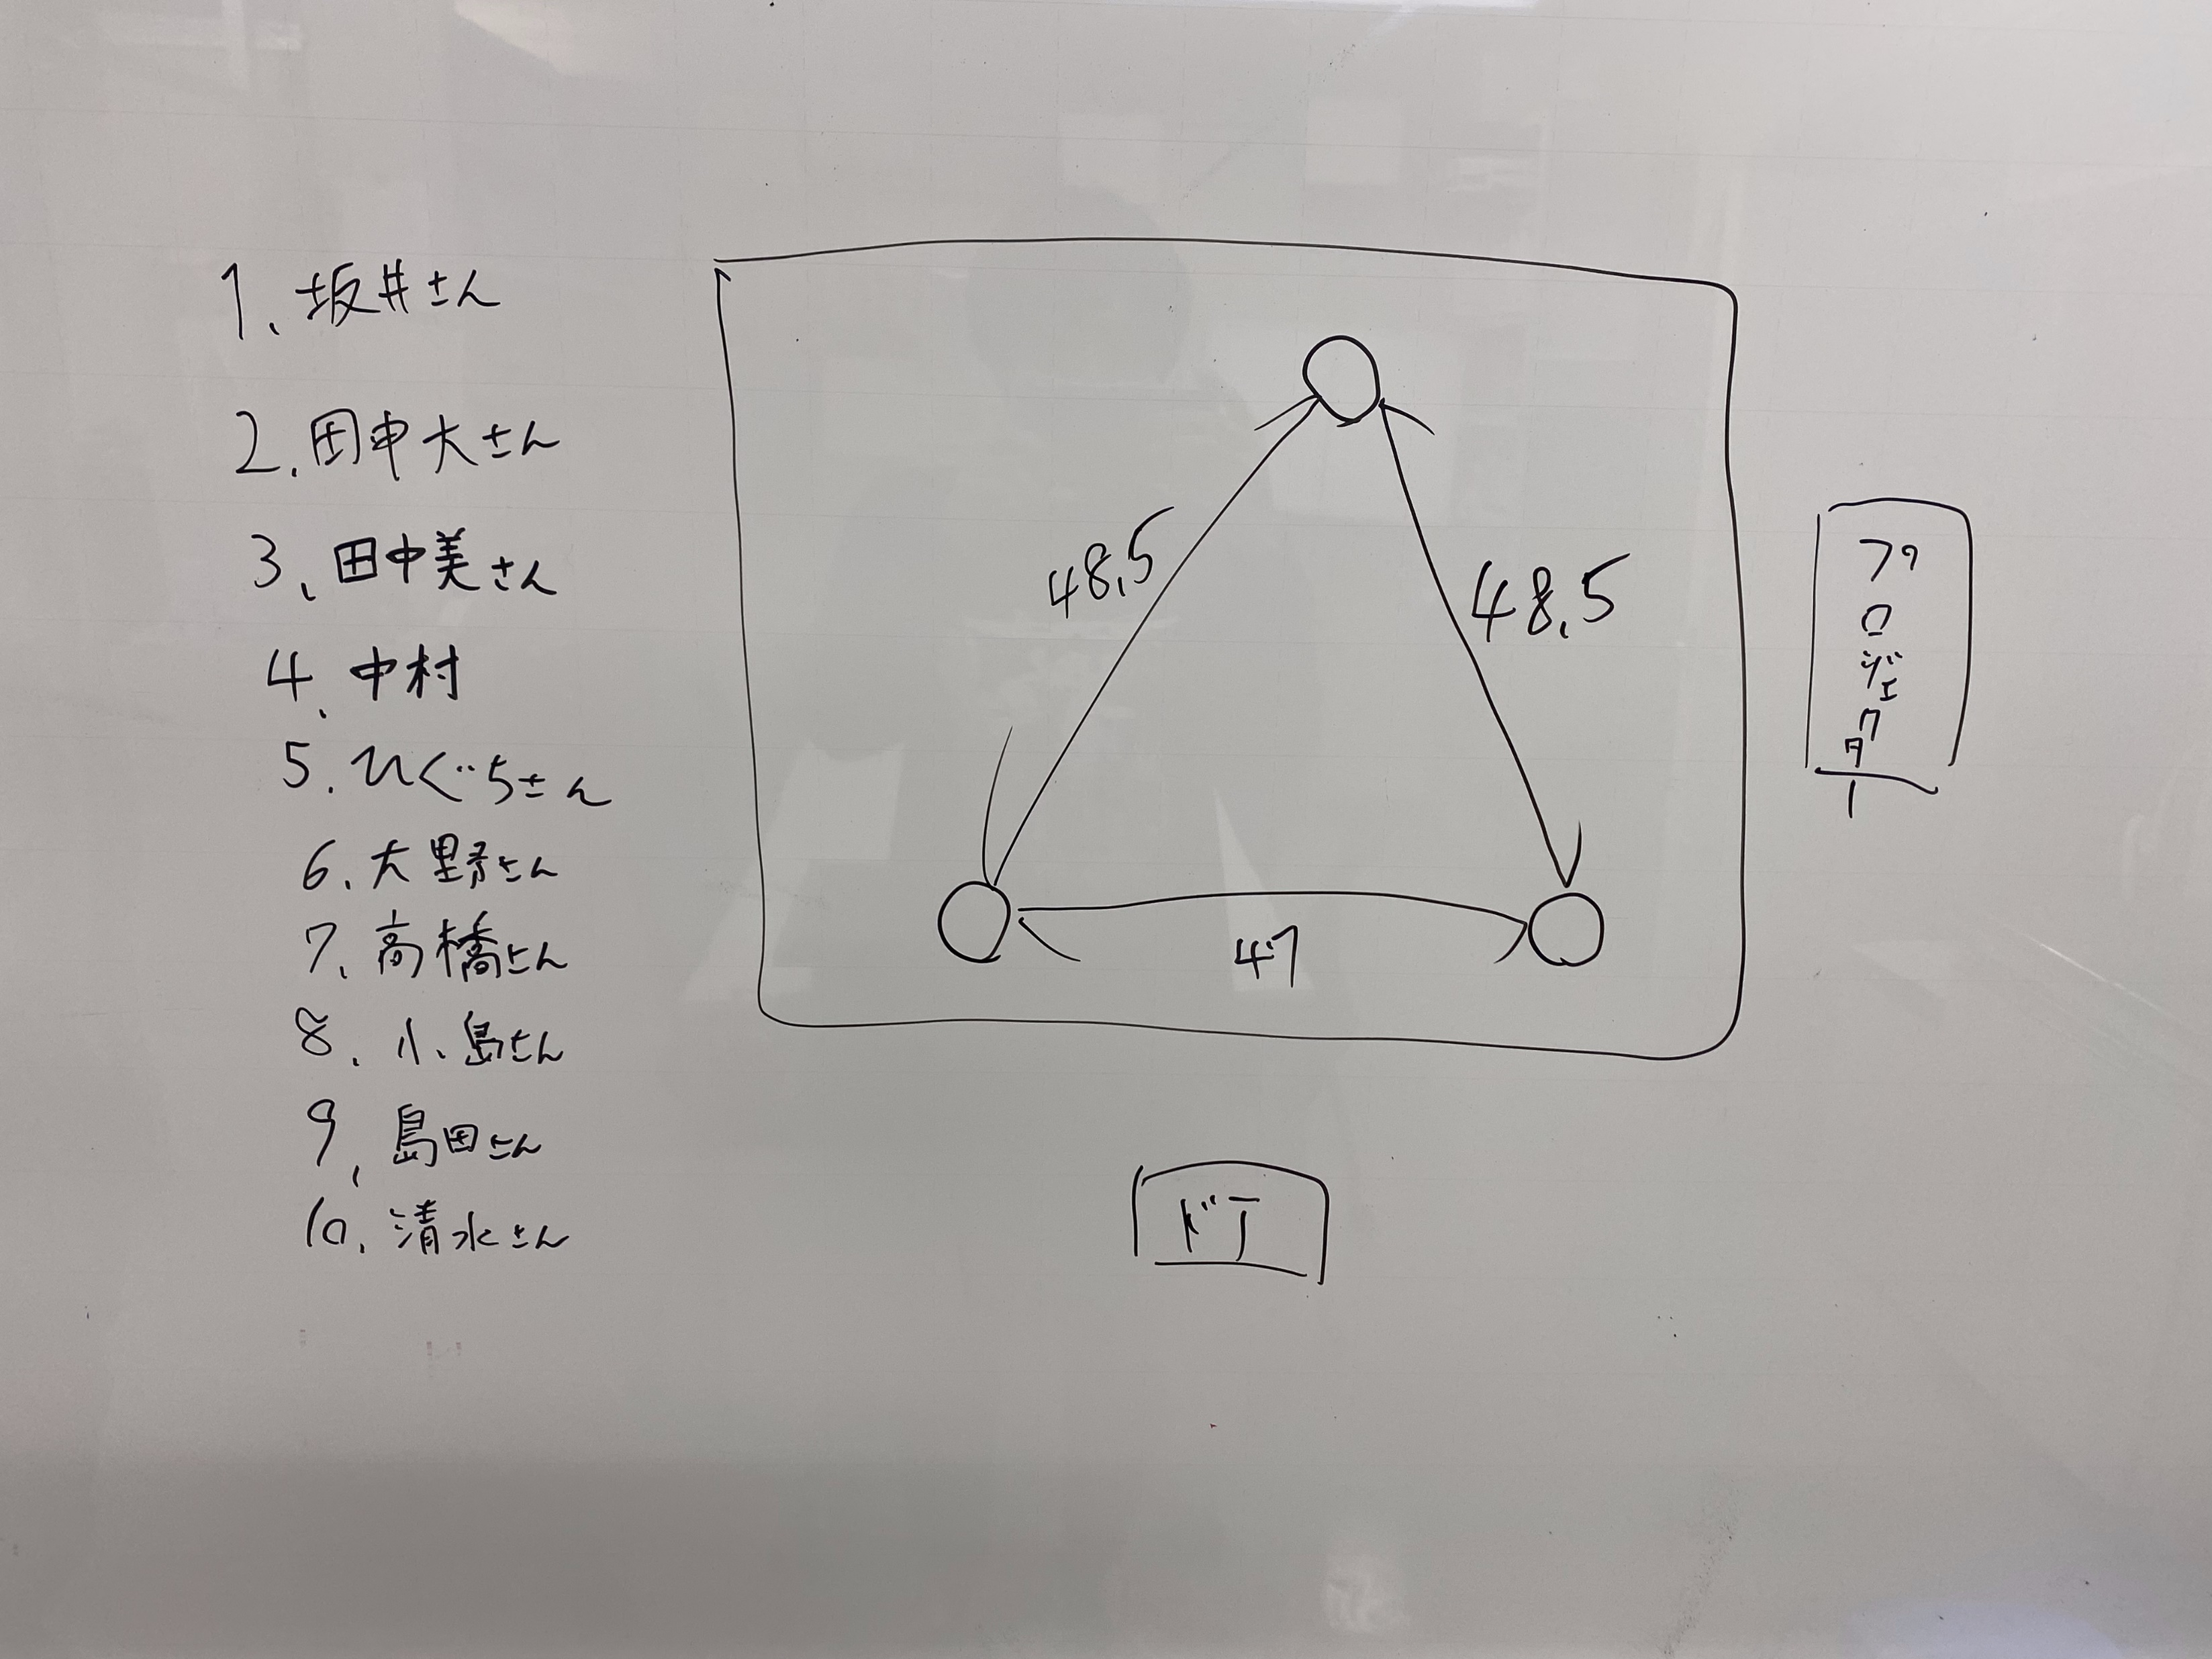 1、坂井さん
2、田中大さん
3、田中美さん
4、中村
5、ひぐちさん
6、大野さん
7、高橋さん
8、小島さん
9、島田さん
10、清水さん
48.5
48.5
47
プロジェクター
ドア